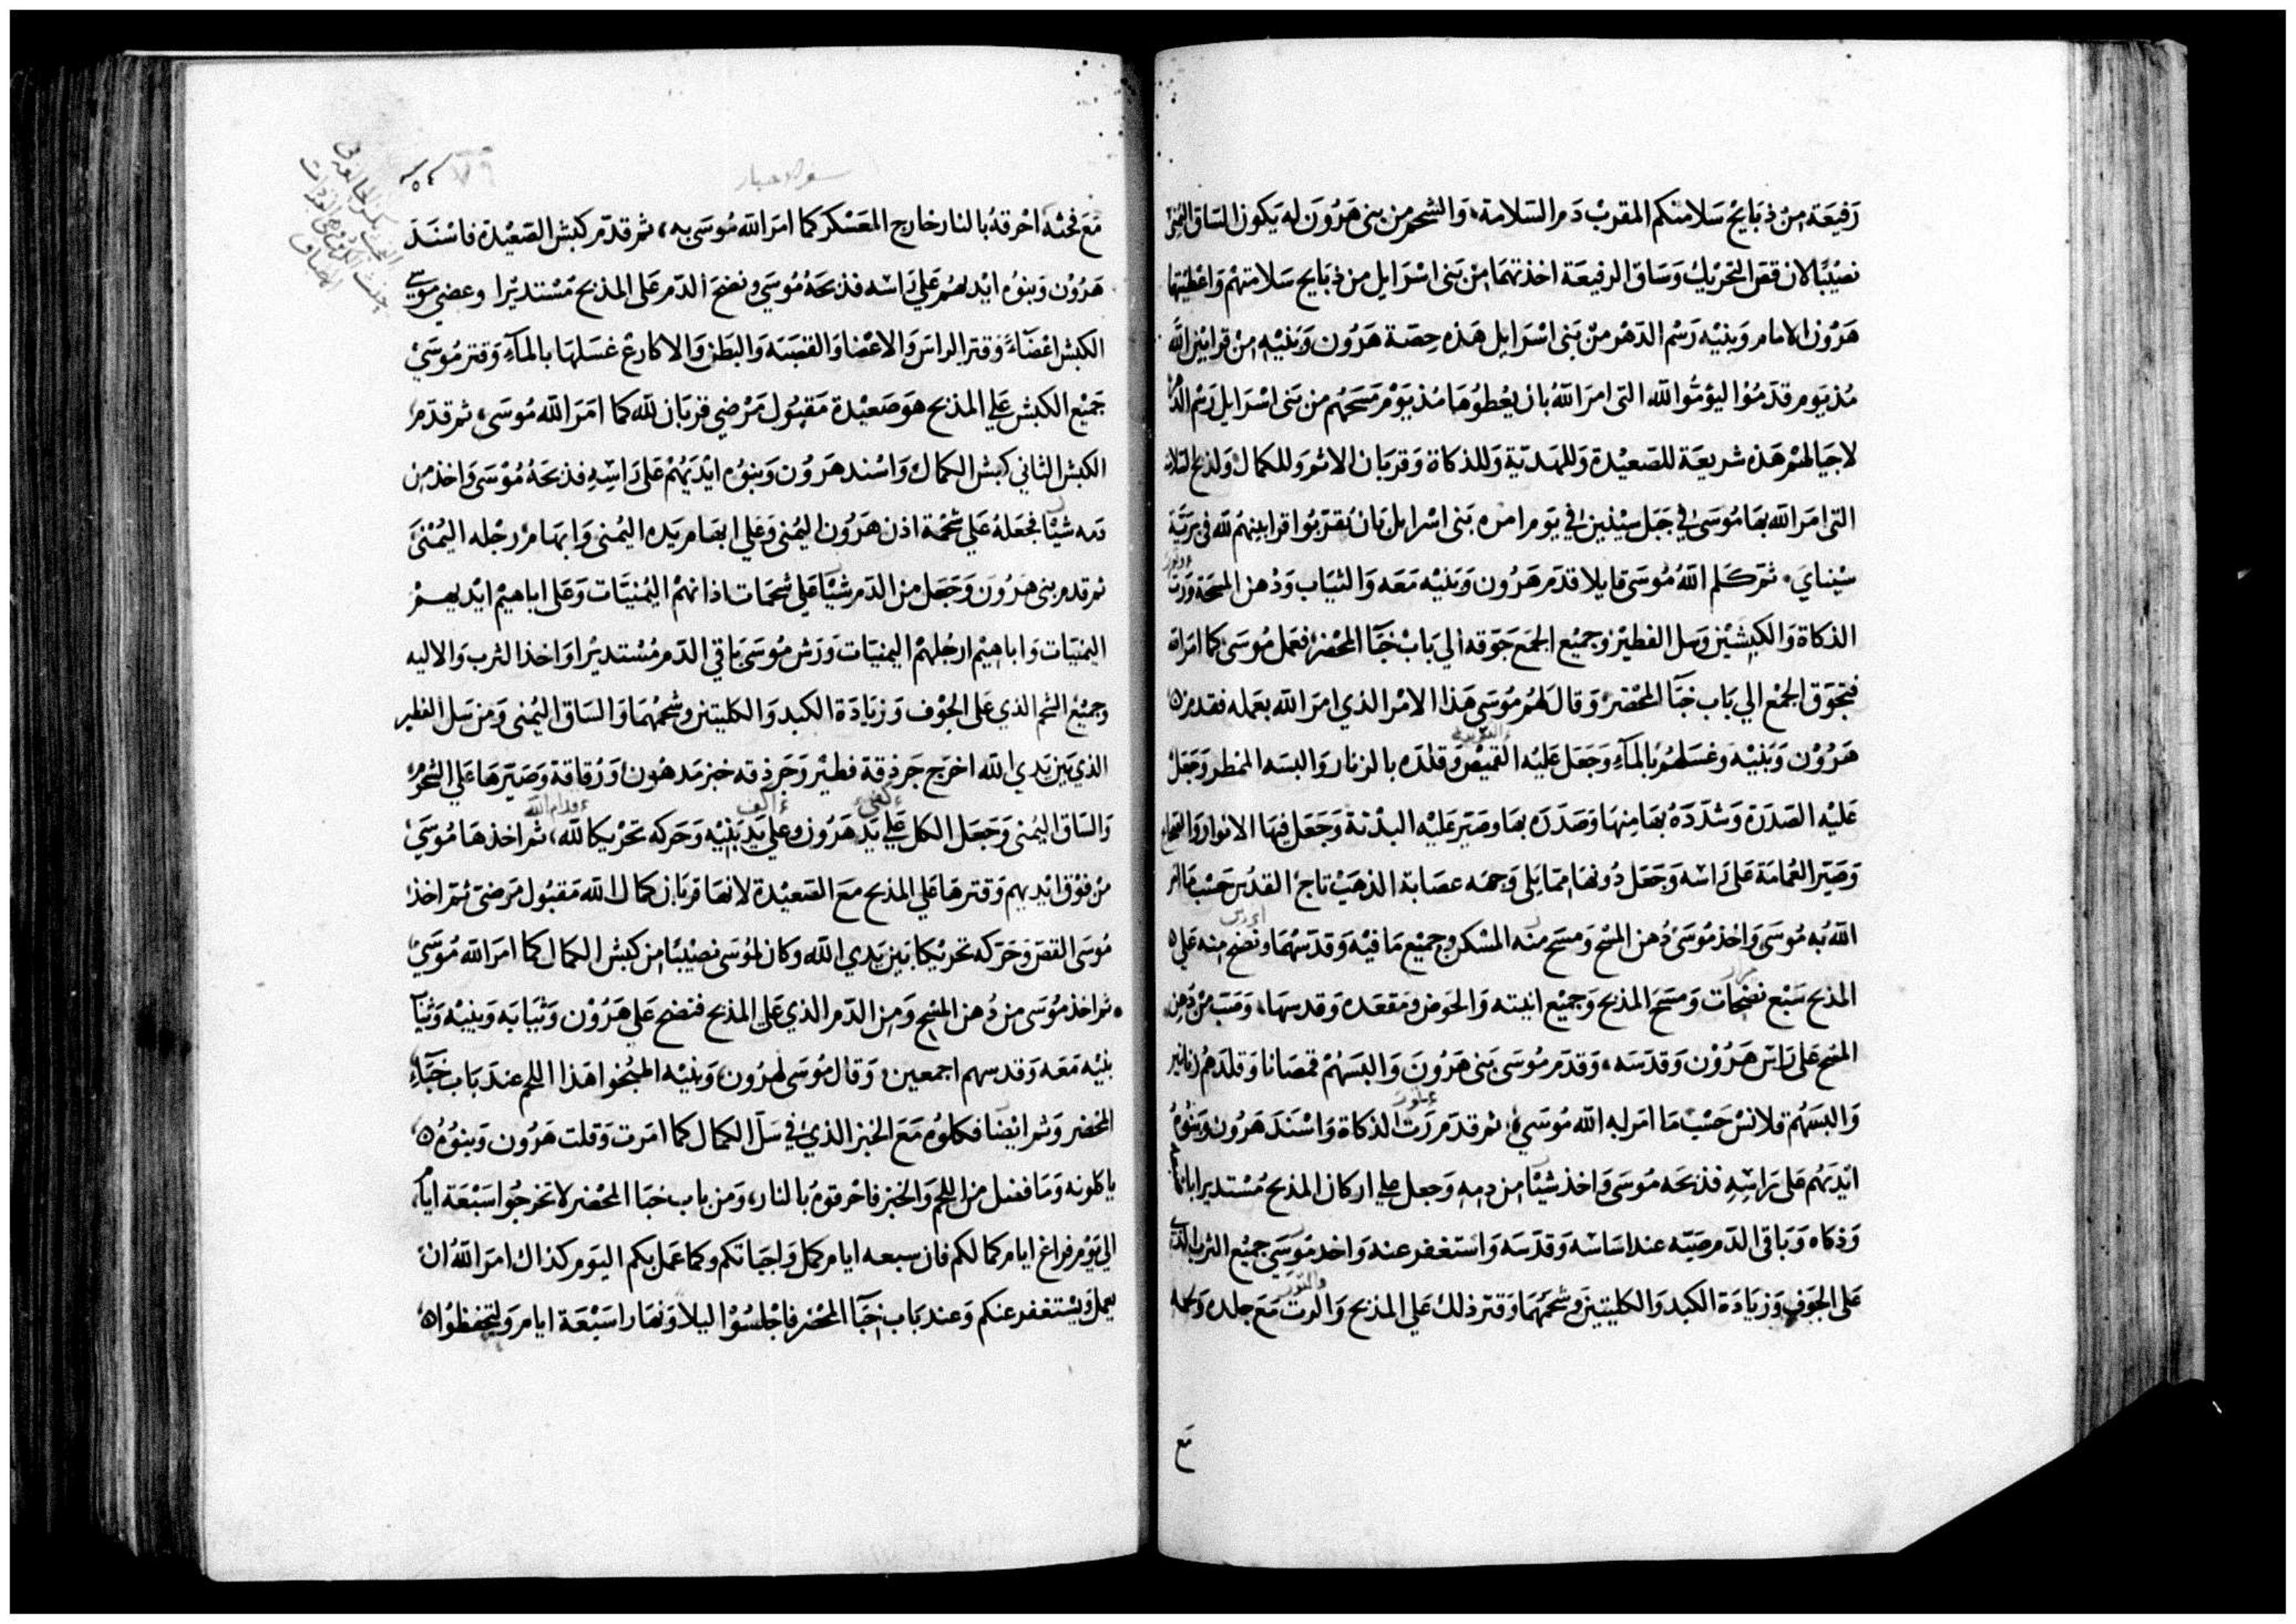 رفيعة من ذبايح سلامتكم المقرب دم السلامة، والشحم من بني هرون له يكون الساق اليمنى
نصيبًا لان قص التحريك وساق الرفيعة اخذتهما من بني اسرايل من ذبايح سلامتهم واعطيتها
هرون الامام وبنيه رسم الدهر من بني اسرايل هذه حصة هرون وبنيه من قرابين الله
مذ يوم قدموا ليؤموا لله التي امر الله بان يعطوها مذ يوم مسحهم من بني اسرايل رسم الدهر
لاجيالهم هذه شريعة للصعيدة وللهدية وللذكاة وقربان الاثم وللكمال ولذبح السلامة
التي امر الله بها موسى في جبل سينين في يوم امره بني اسرايل بان يقربوا قرابينهم لله في برية
سيناي، ثم كلم الله موسى قايلا قدم هرون وبنيه معه والثياب ودهن المسحة ورت
الذكاة والكبشين وسل الفطير وجميع الجمع جوقه الي باب خبآ المحضر، فعمل موسى كما امر الله
فتجوق الجمع الي باب خبآ المحضر وقال لهم موسى هذا الامر الذي امر الله بعمله فقدم
هرون وبنيه وغسلهم بالمآء وجعل عليه القميص وقلده بالزنار والبسه الممطر وجعل
عليه الصدرة وشدده بها منها وصدره بها وصير عليه البدنة وجعل فيها الانوار والصحاح
وصير العمامة على راسه وجعل دونها مما يلي وجهه عصابة الذهب تاج القدس حسب ما امر
الله به موسى واخذ موسى دهن المسح ومسح منه المسكن وجميع ما فيه وقدسهما ونضح منه علي
المذبح سبع نضحات ومسح المذبح وجميع انيته والحوض ومقعده وقدسها، وصب من دهن
المسح على راس هرون وقدسه، وقدم موسى بني هرون والبسهم قمصانا وقلدهم زنانير
والبسهم قلانس حسب ما امر به الله موسى، ثم قدم رت الذكاة واسند هرون وبنوه
ايديهم على راسه فذبحه موسى واخذ شيًا من دمه وجعل علي اركان المذبح مستديرا
وذكاه وباقي الدم صبه عند اساسه وقدسه واستغفر عنه واخذ موسى جميع الثرب الذي
على الجوف وزيادة الكبد والكليتين وشحمهما وقتر ذلك علي المذبح والرت مع جلده ولحمه
مع
سفر الاحبار
٧٩
مع فحثه احرقه بالنار خارج المعسكر كما امر الله موسى به، ثم قدم كبش الصعيدة فاسند
هرون وبنوه ايديهم علي راسه فذبحه موسى ونضح الدم على المذبح مستديرا وعضى موسى
الكبش اعضآء وقتر الراس والاعضا والقصبه والبطن والاكارع غسلها بالمآء وقتر موسى
جميع الكبش علي المذبح هو صعيدة مقبول مرضي قربان لله كما امر الله موسى، ثم قدم
الكبش الثاني كبش الكمال واسند هرون وبنوه ايديهم على راسه فذبحه موسى واخذ من
دمه شيًا فجعله علي شحمة اذن هرون اليمنى وعلي ابهام يده اليمنى وابهام رجله اليمنى
ثم قدم بني هرون وجعل من الدم شيًا علي شحمات اذانهم اليمنيات وعلى اباهيم ايديهم
اليمنيات واباهيم ارجلهم اليمنيات ورش موسى باقي الدم مستديرا واخذ الثرب والاليه
وجميع الشحم الذي على الجوف وزيادة الكبد والكليتين وشحمهما والساق اليمنى ومن سل الفطير
الذي بين يدي الله اخرج جرذقة فطير وجرذقه خبز مدهون ورقاقة وصيرها علي الشحوم
والساق اليمنى وجعل الكل علي يد هرون وعلي يد بنيه وحركه تحريكا لله، ثم اخذها موسى
من فوق ايديهم وقترها علي المذبح مع الصعيدة لانها قربان كمال لله مقبول مرضى ثم اخذ
موسى القص وحركه تحريكا بين يدي الله وكان لموسى نصيبًا من كبش الكمال كما امر الله موسى
ثم اخذ موسى من دهن المسح ومن الدم الذي على المذبح فنضح على هرون وثيابه وبنيه وثياب
بنيه معه وقدسهم اجمعين، وقال موسى لهرون وبنيه اطبخوا هذا اللحم عند باب خبآء
المحضر وثم ايضا فكلوه مع الخبز الذي في سل الكمال كما امرت وقلت هرون وبنوه
ياكلونه وما فضل من اللحم والخبز فاحرقوه بالنار، ومن باب خبا المحضر لا تخرجوا سبعة ايام
الي يوم فراغ ايام كمالكم فان سبعه ايام كمل واجباتكم وكما عمل بكم اليوم كذاك امر الله ان
يعمل ويستغفر عنكم وعند باب خبآ المحضر فاجلسوا ليلا ونهارا سبعة ايام ولتحفظوا